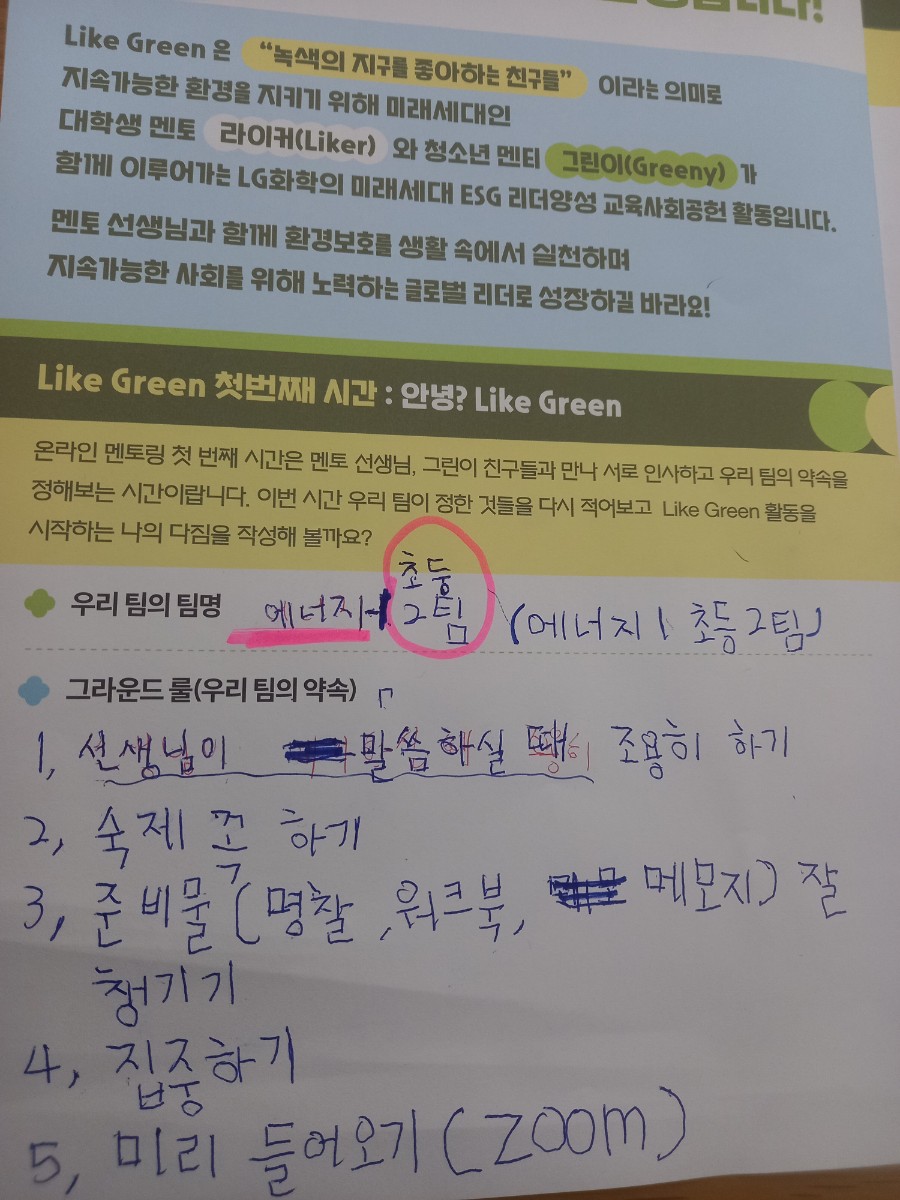 Like Green 은 “녹색의 지구를 좋아하는 친구들” 이라는 의미로
지속가능한 환경을 지키기 위해 미래세대인
대학생 멘토 라이커(Liker) 와 청소년 멘티 그린이(Greeny) 가
함께 이루어가는 LG화학의 미래세대 ESG 리더양성 교육사회공헌 활동입니다.
멘토 선생님과 함께 환경보호를 생활 속에서 실천하며
지속가능한 사회를 위해 노력하는 글로벌 리더로 성장하길 바라요!
Like Green 첫번째 시간 : 안녕? Like Green
온라인 멘토링 첫 번째 시간은 멘토 선생님, 그린이 친구들과 만나 서로 인사하고 우리 팀의 약속을
정해보는 시간이랍니다. 이번 시간 우리 팀이 정한 것들을 다시 적어보고 Like Green 활동을
시작하는 나의 다짐을 작성해 볼까요?
우리 팀의 팀명 에너지-1 초등 2팀 (에너지1 초등2팀)
그라운드 룰(우리 팀의 약속)
1, 선생님이 말씀하실 때 조용히 하기
2, 숙제 꼭 하기
3, 준비물(명찰, 워크북, 메모지) 잘
챙기기
4, 집중하기
5, 미리 들어오기(ZOOM)